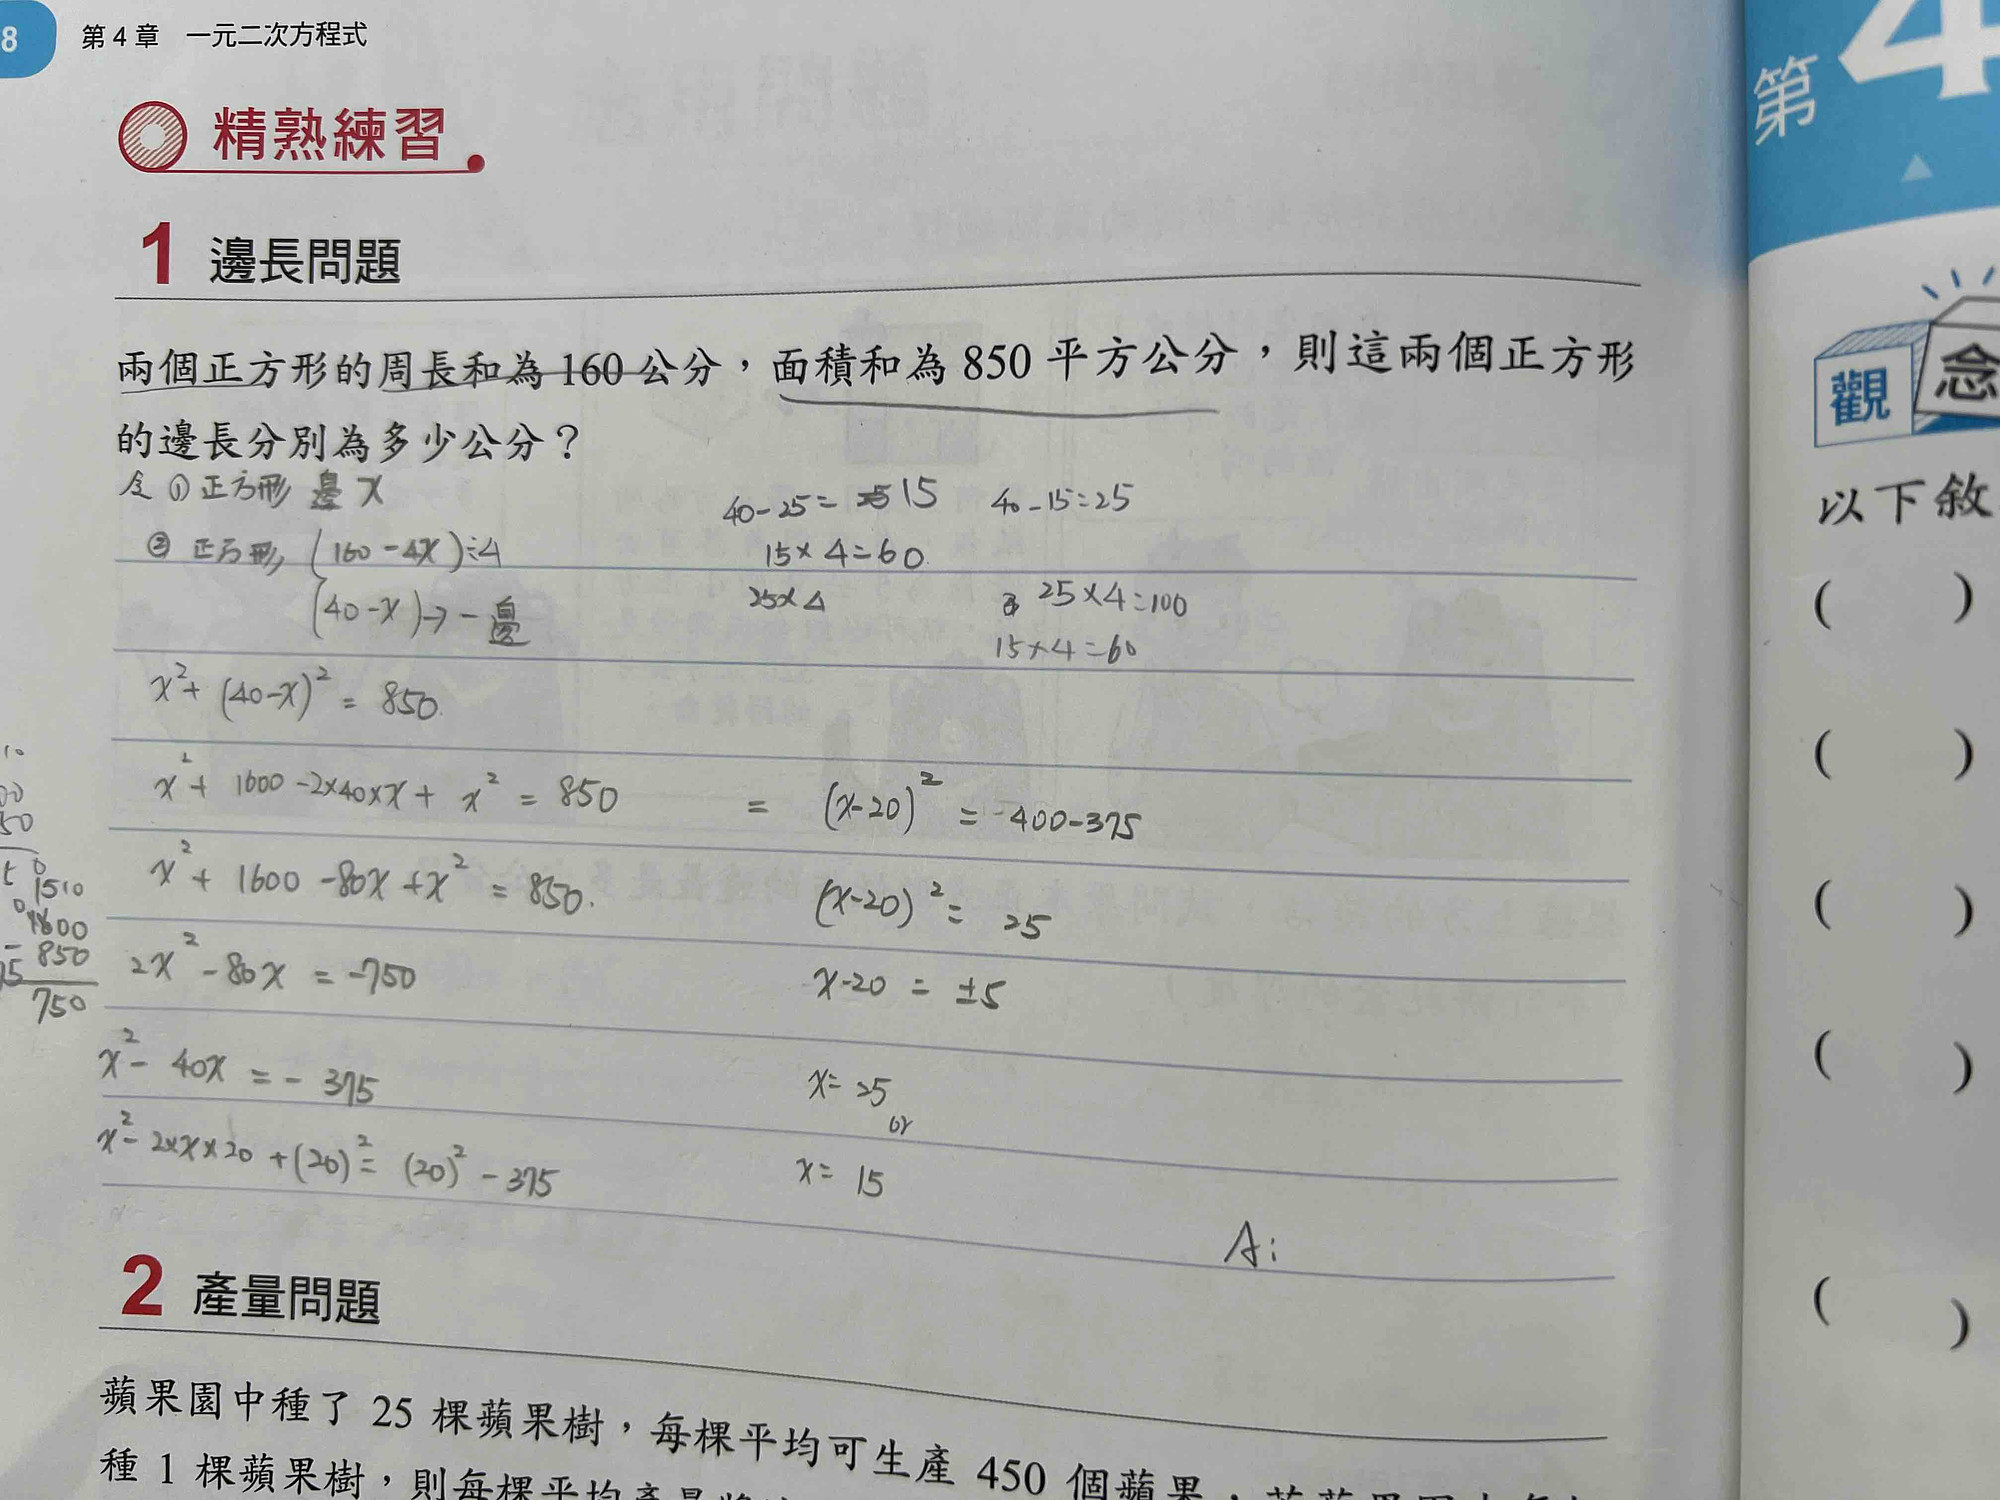 8 第4章 一元二次方程式
精熟練習
1 邊長問題
兩個正方形的周長和為 160 公分，面積和為 850 平方公分，則這兩個正方形
的邊長分別為多少公分？
令 ① 正方形 邊 x
② 正方形 (160-4x)÷4
(40-x)→一邊
40-25=15
15×4=60
25×4
40-15=25
25×4=100
15×4=60
x²+(40-x)²=850
x²+1600-2×40×x+x²=850
x²+1600-80x+x²=850.
2x²-80x=-750
x²-40x=-375
x²-2×x×20+(20)²=(20)²-375
= (x-20)²=400-375
(x-20)²=25
x-20=±5
x=25
or
x=15
A:
1510
1600
-850
750
2 產量問題
蘋果園中種了 25 棵蘋果樹，每棵平均可生產 450 個蘋果，
種 1 棵蘋果樹，則每棵平均產量
第4
觀念
以下敘
( )
( )
( )
( )
( )